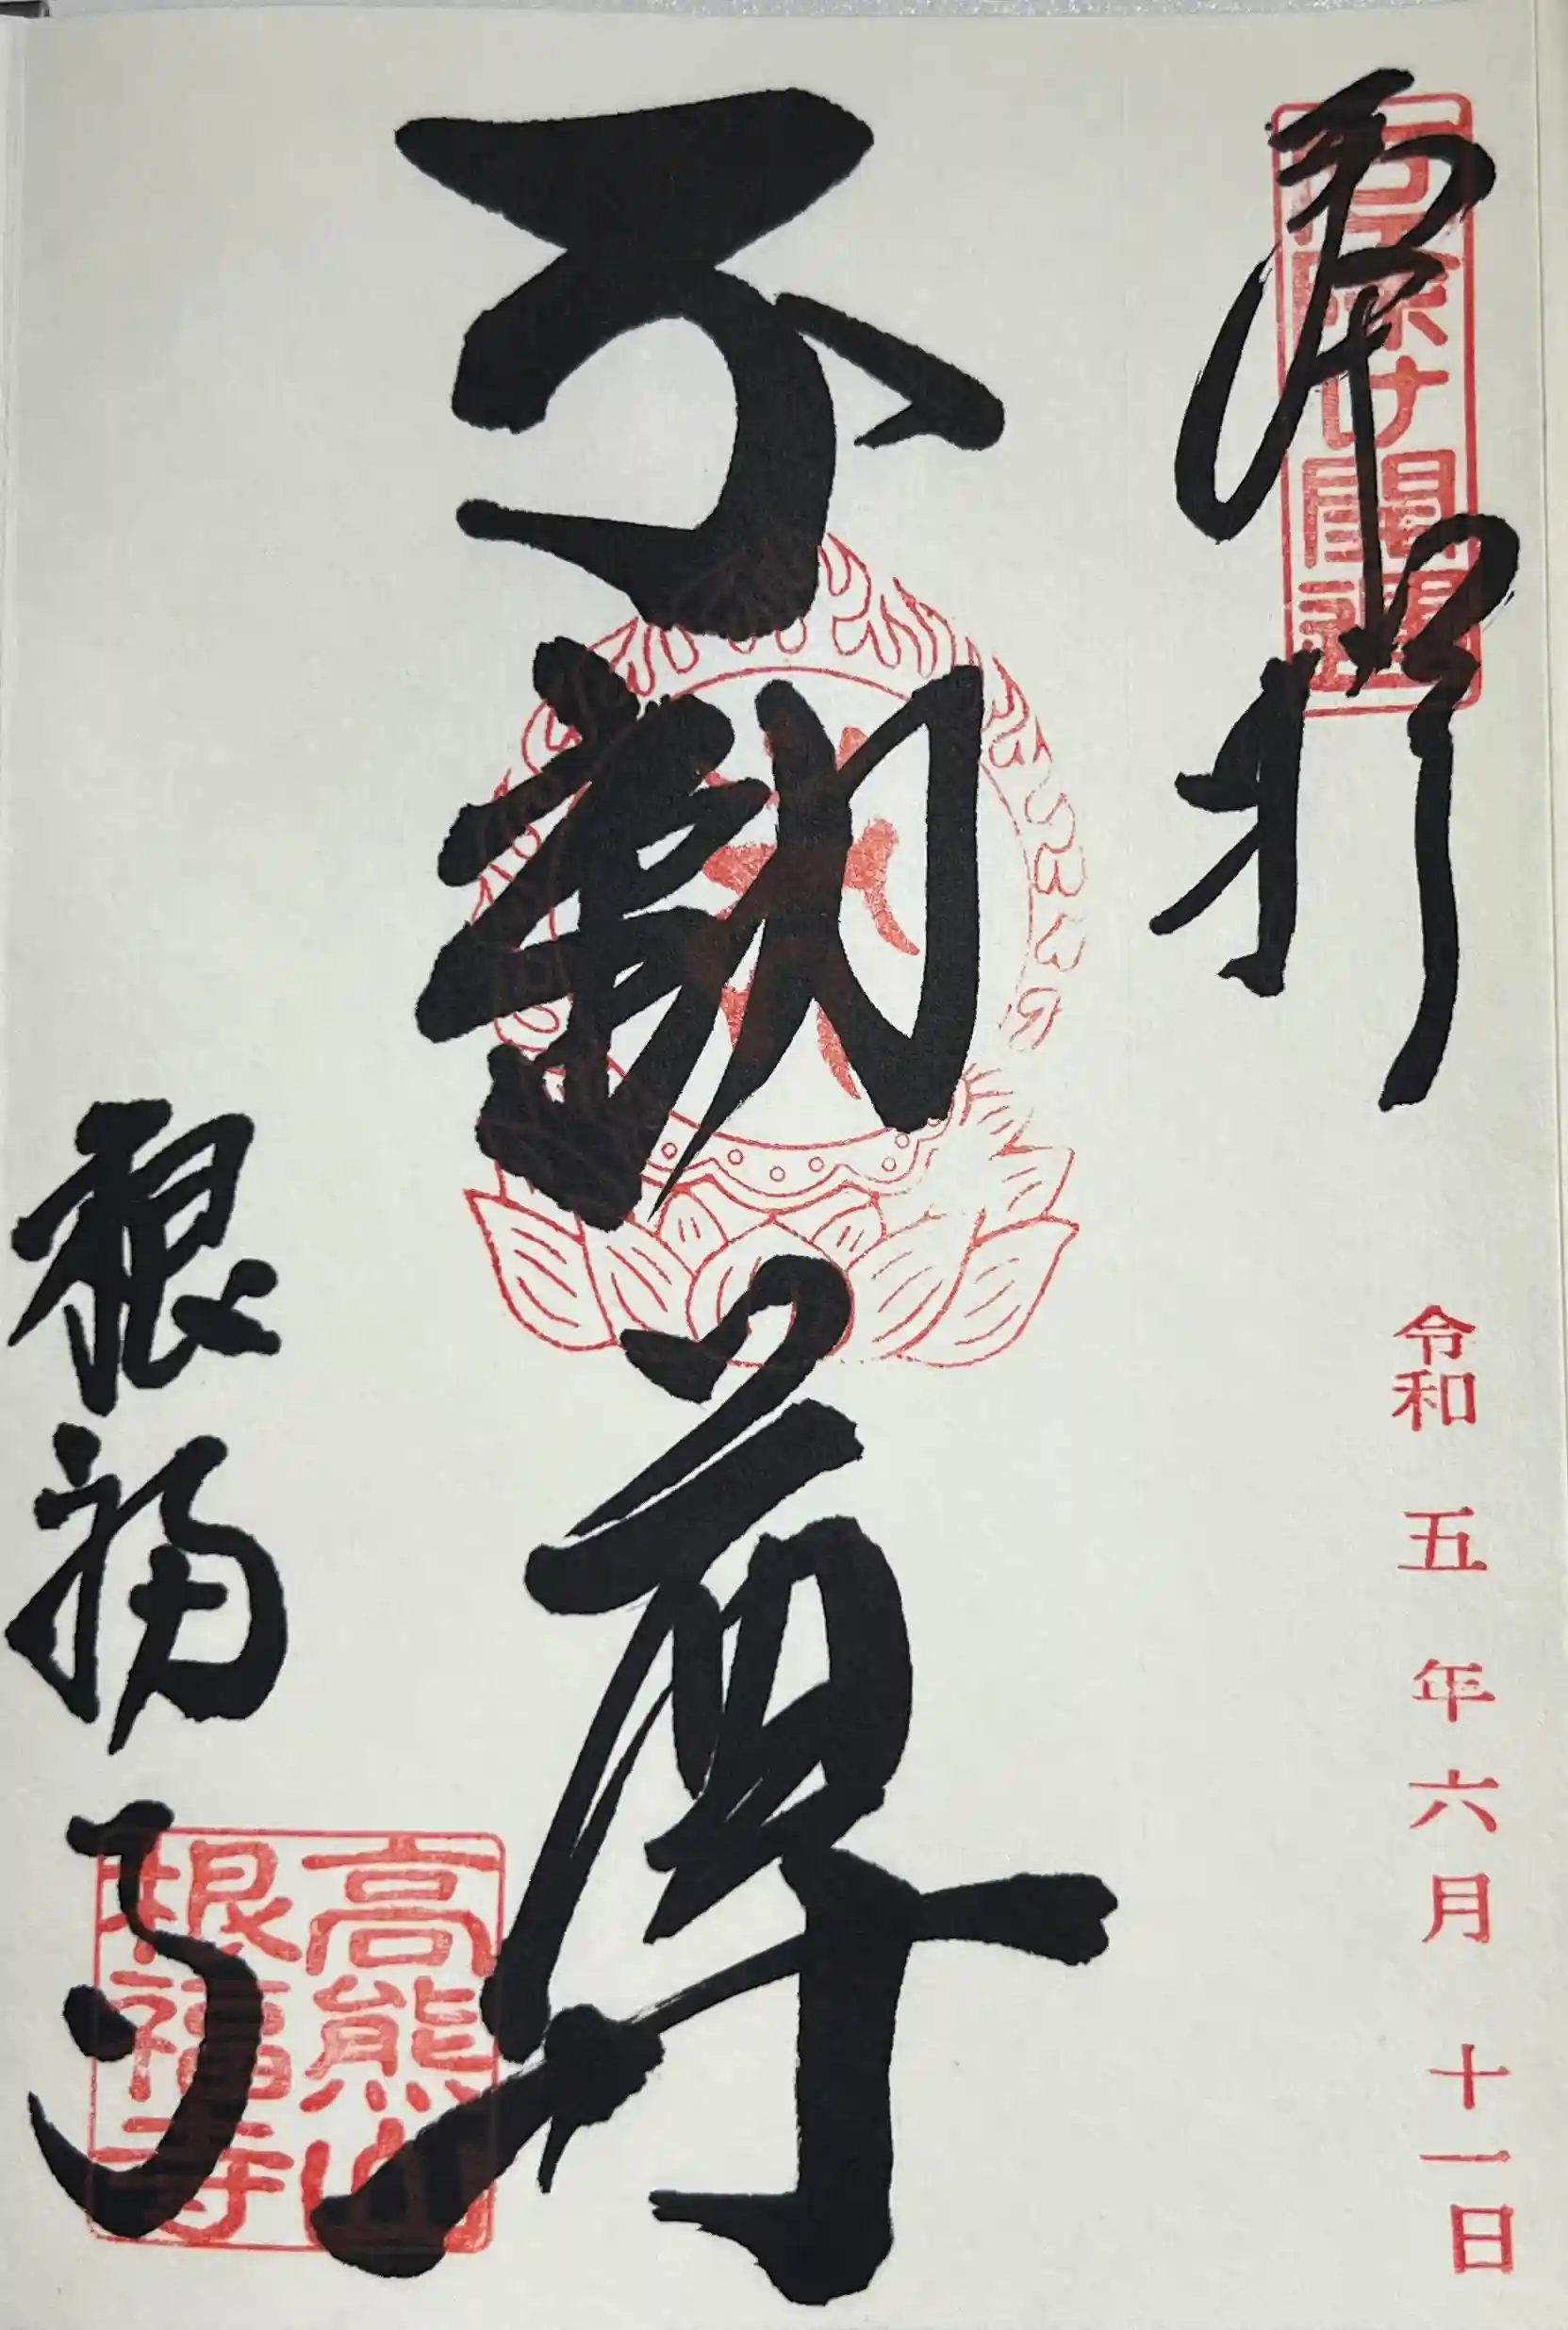 奉拝
厄除け開運
令和五年六月十一日
不動尊
根福寺
高熊山
根福寺